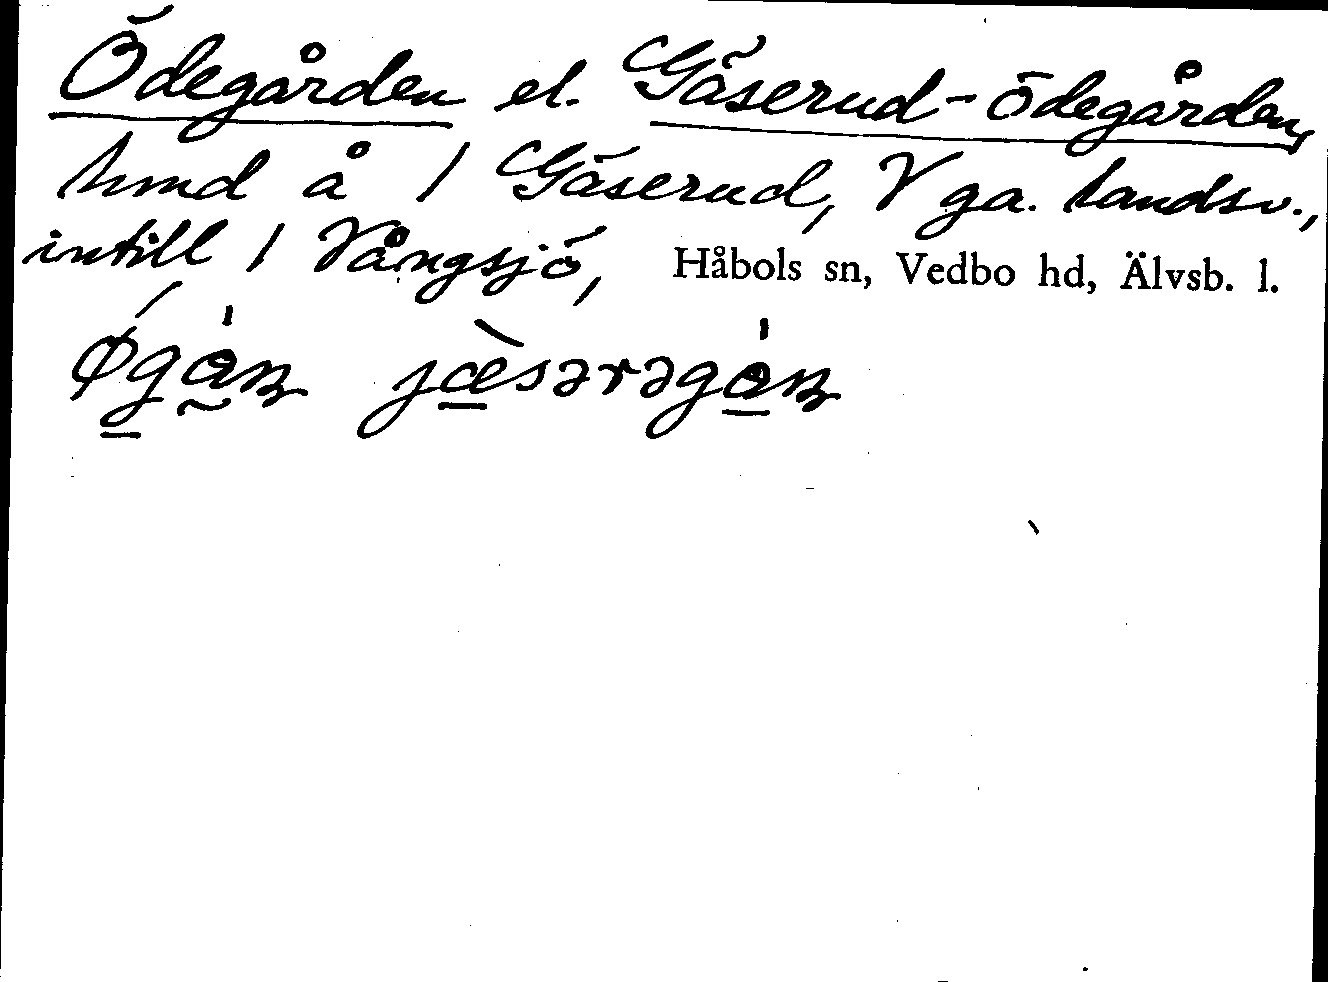 Ödegården el. Gäserud-ödegården,
hmd å 1 Gäserud, V ga. landsv.,
intill 1 Vångsjö, Håbols sn, Vedbo hd, Älvsb. l.